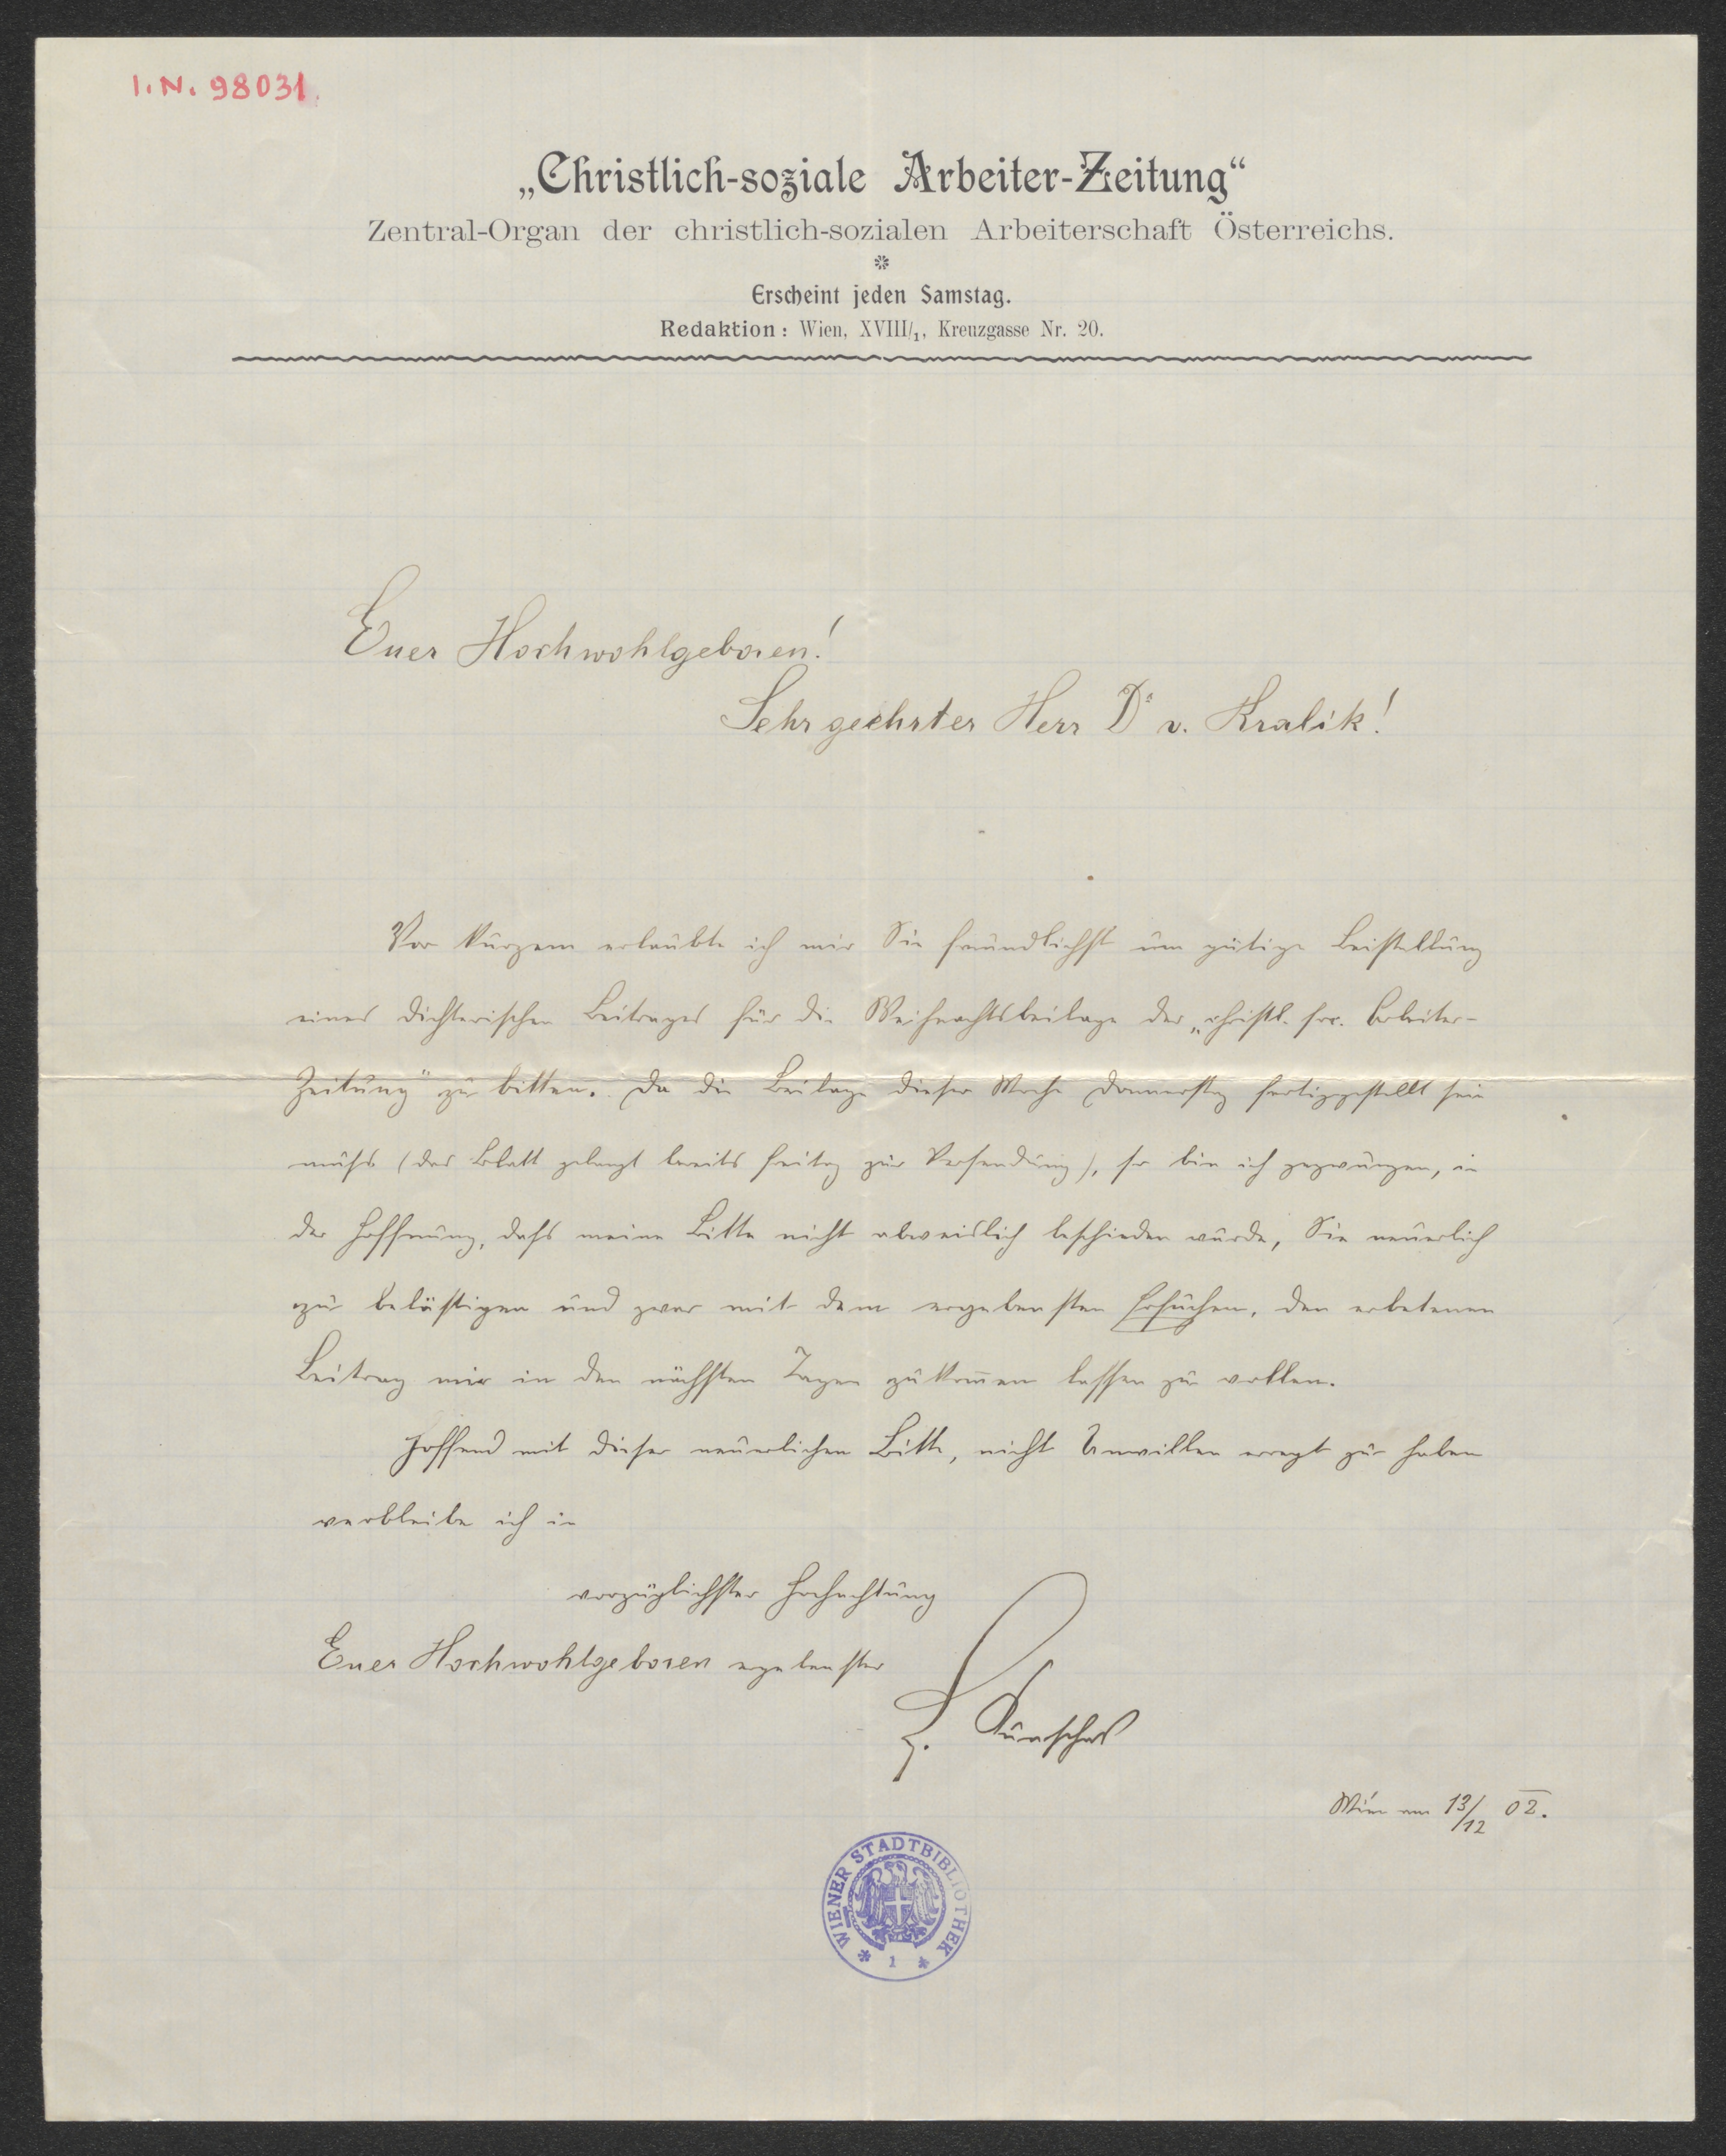 I.N. 98031.
„Christlich-soziale Arbeiter-Zeitung“
Zentral-Organ der christlich-sozialen Arbeiterschaft Österreichs.
Erscheint jeden Samstag.
Redaktion: Wien, XVIII/1, Kreuzgasse Nr. 20.
Euer Hochwohlgeboren!
Sehr geehrter Herr Dr v. Kralik!
Vor kurzem erlaubte ich mir Sie freundlichst um gütige Beistellung
eines dichterischen Beitrages für die Weihnachtsbeilage der „christl. soc. Arbeiter-
Zeitung“ zu bitten. Da die Beilage dieser Woche Donnerstag fertiggestellt sein
muss (das Blatt gelangt bereits Freitag zur Versendung), so bin ich gezwungen, in
der Hoffnung, dass meine Bitte nicht abweislich beschieden würde, Sie neuerlich
zu belästigen und zwar mit dem ergebensten Ersuchen, den erbetenen
Beitrag mir in den nächsten Tagen zukommen lassen zu wollen.
Hoffend mit dieser neuerlichen Bitte, nicht Unwillen erregt zu haben
verbleibe ich in
vorzüglichster Hochachtung
Euer Hochwohlgeboren ergebenster
L. Kunschak
Wien am 13/12 02.
WIENER STADTBIBLIOTHEK
1